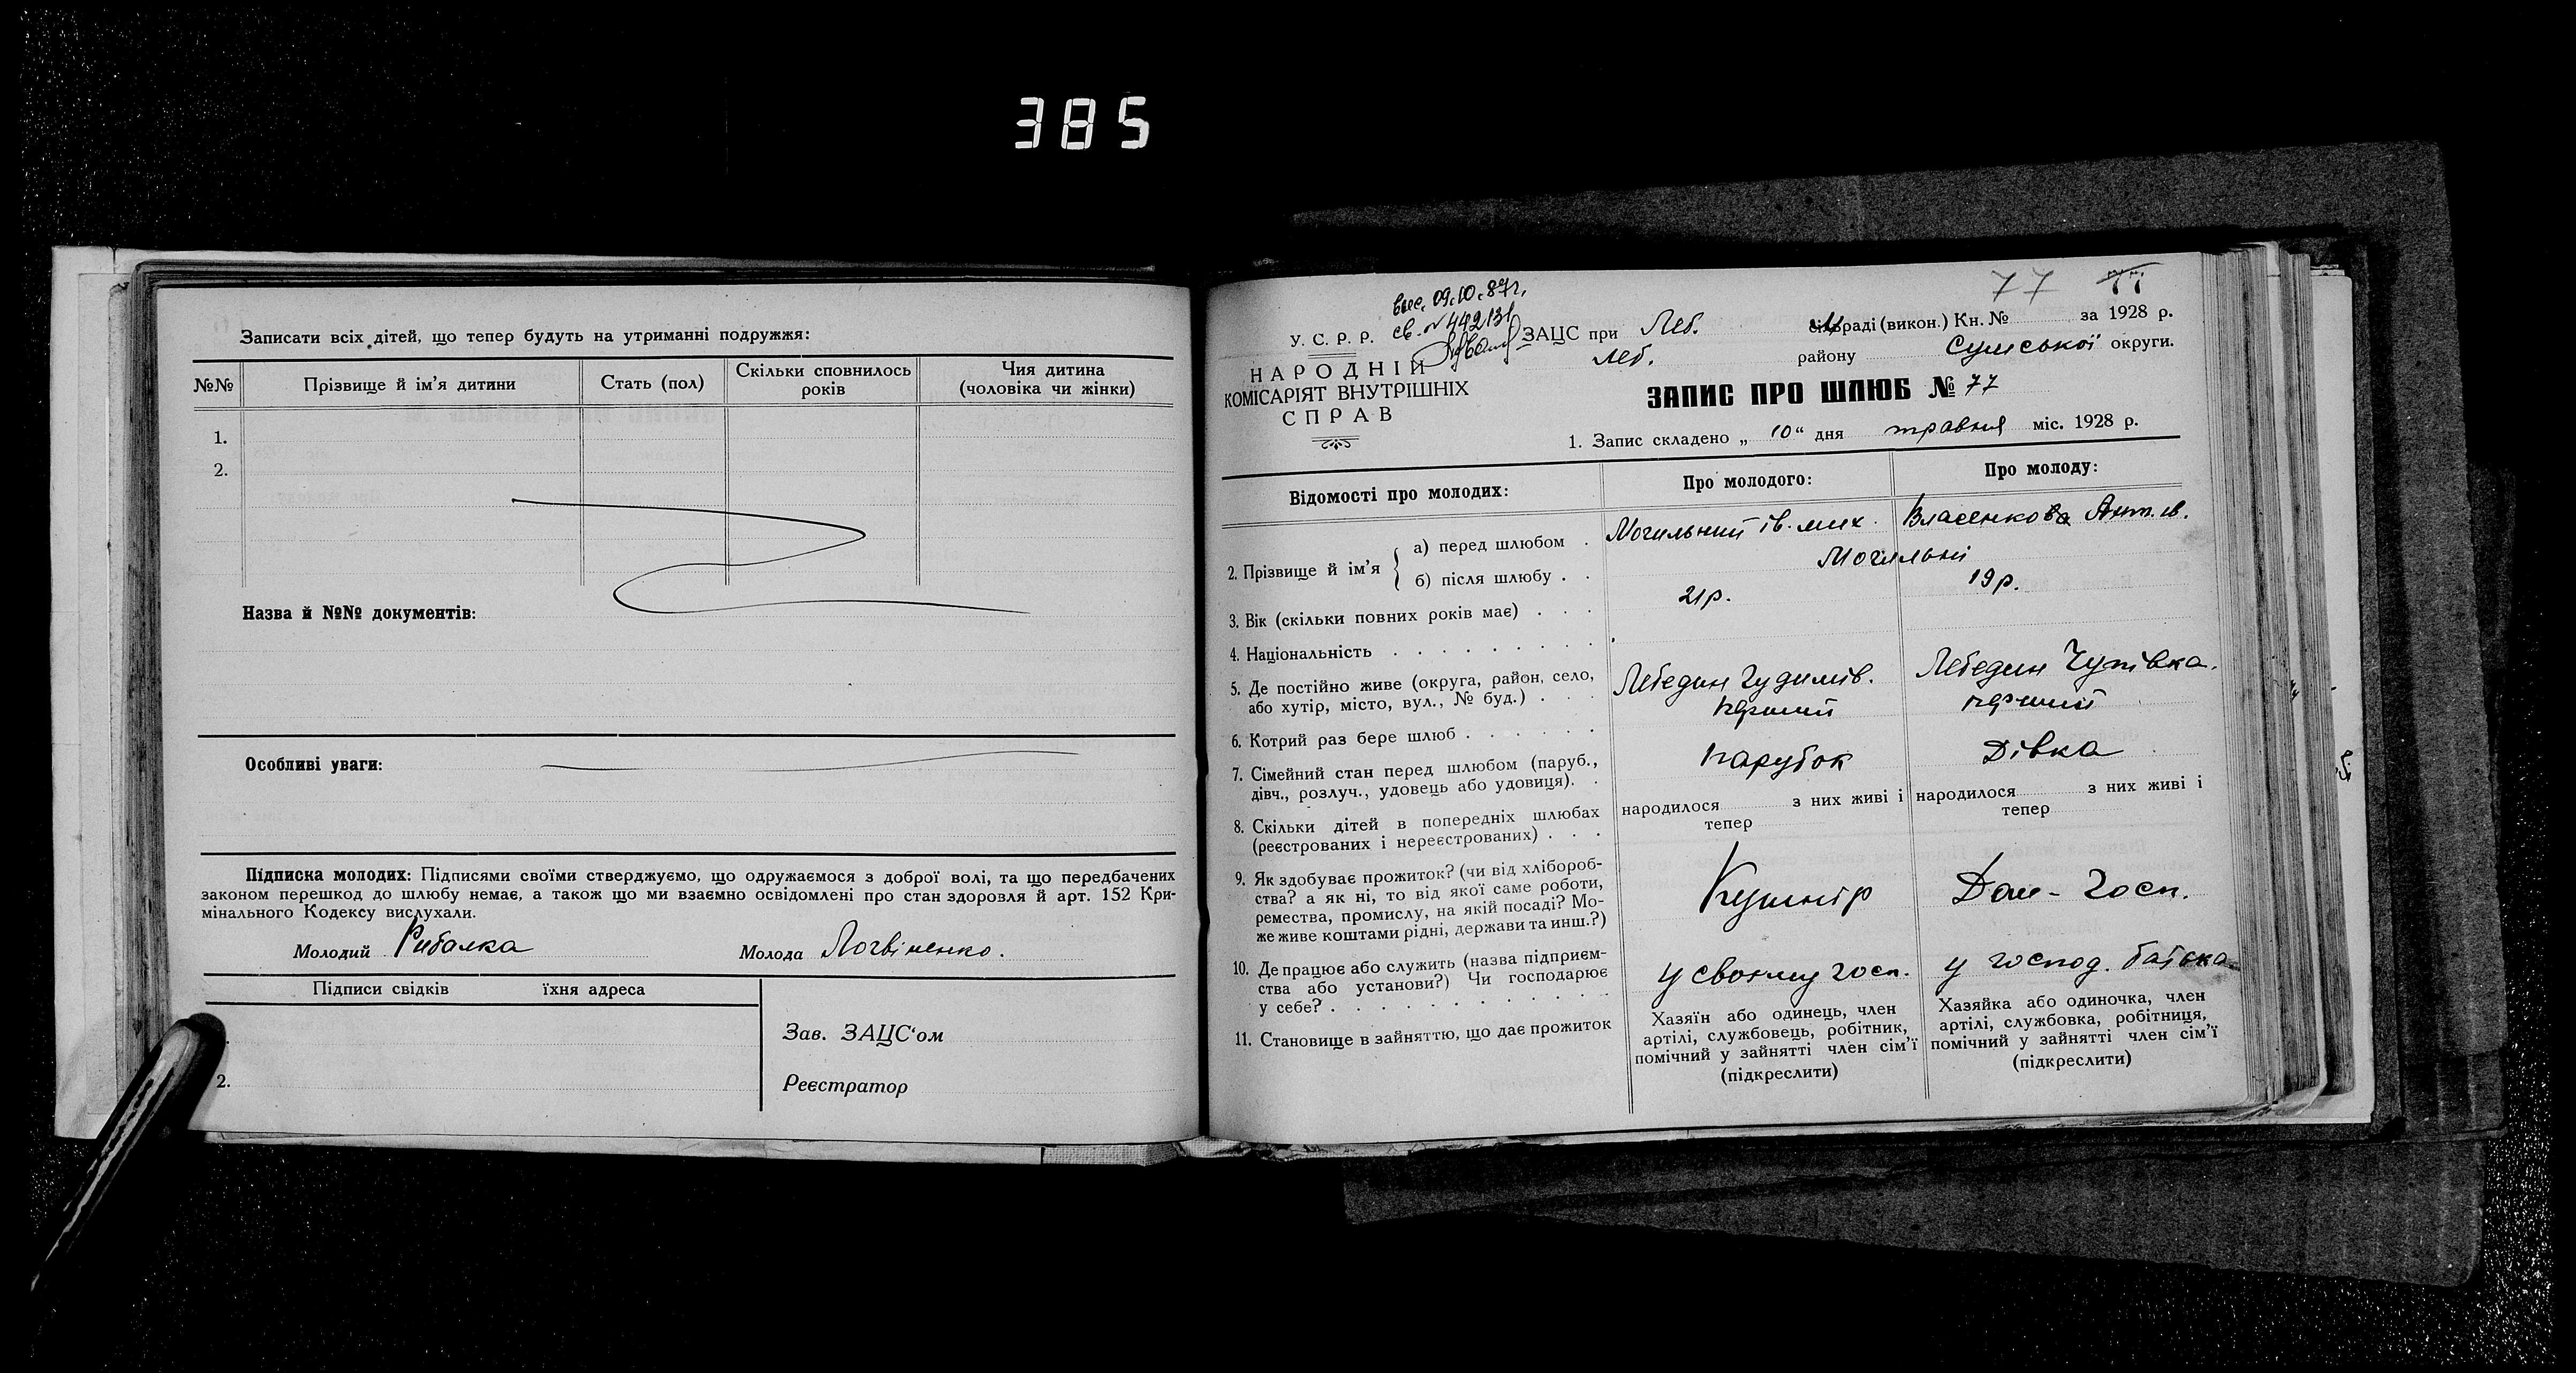 385
Записати всіх дітей, що тепер будуть на утриманні подружжя:
№№ Прізвище й ім'я дитини Стать (пол) Скільки сповнилось років Чия дитина (чоловіка чи жінки)
1.
2.
Назва й №№ документів:
Особливі уваги:
Підписка молодих: Підписами своїми стверджуємо, що одружаємося з доброї волі, та що передбачених
законом перешкод до шлюбу немає, а також що ми взаємно освідомлені про стан здоровля й арт. 152 Кри-
мінального Кодексу вислухали.
Молодий Рибалка Молода Логвіненко.
Підписи свідків їхня адреса
2.
Зав. ЗАЦС'ом
Реєстратор
77 77
выс. 09.10.87г.
св. № 442131
У. С. Р. Р.
НАРОДНІЙ
КОМІСАРІЯТ ВНУТРІШНІХ
СПРАВ
ЗАЦС при Леб. раді (викон.) Кн. № за 1928 р.
Леб. району Сумської округи.
ЗАПИС ПРО ШЛЮБ № 77
1. Запис складено „ 10 “ дня травня міс. 1928 р.
Відомості про молодих: Про молодого: Про молоду:
2. Прізвище й ім'я
а) перед шлюбом Могильний Ів. Мих. Власенкова Ант. Ів.
б) після шлюбу Могильні
3. Вік (скільки повних років має) 21р. 19р.
4. Національність
5. Де постійно живе (округа, район, село,
або хутір, місто, вул., № буд.) Лебедин Гудимів. Лебедин Чупівка.
6. Котрий раз бере шлюб перший перший
7. Сімейний стан перед шлюбом (паруб.,
дівч., розлуч., удовець або удовиця). парубок Дівка
8. Скільки дітей в попередніх шлюбах
(реєстрованих і нереєстрованих)
народилося з них живі і
тепер
народилося з них живі і
тепер
9. Як здобуває прожиток? (чи від хлібороб-
ства? а як ні, то від якої саме роботи,
ремества, промислу, на якій посаді? Мо-
же живе коштами рідні, держави та инш.?)
Кушнір Дом-Госп.
10. Де працює або служить (назва підприєм-
ства або установи?) Чи господарює
у себе?
у своєму госп. у господ. батька
11. Становище в зайняттю, що дає прожиток
Хазяїн або одинець, член
артілі, службовець, робітник,
помічний у зайнятті член сім'ї
(підкреслити)
Хазяйка або одиночка, член
артілі, службовка, робітниця,
помічний у зайнятті член сім'ї
(підкреслити)